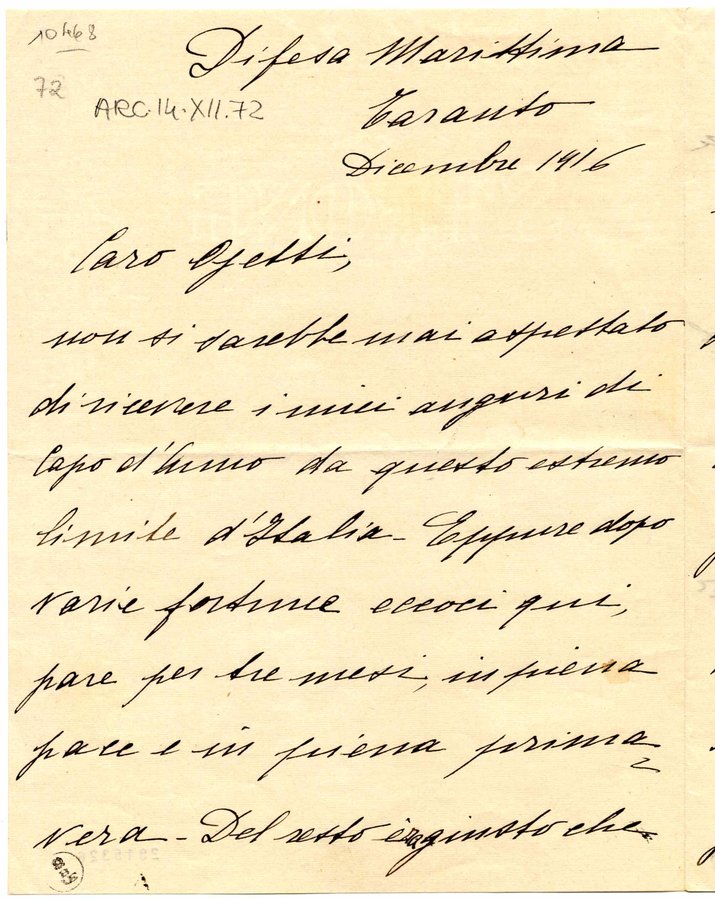 10468
72
ARC.14.XII.72
Difesa Marittima
Taranto
Dicembre 1916
Caro Ojetti,
non si sarebbe mai aspettato
di ricevere i miei auguri di
Capo d'Anno da questo estremo
limite d'Italia - Eppure dopo
varie fortune eccoci qui,
pare per tre mesi, in piena
pace e in piena prima
vera - Del resto giusto che